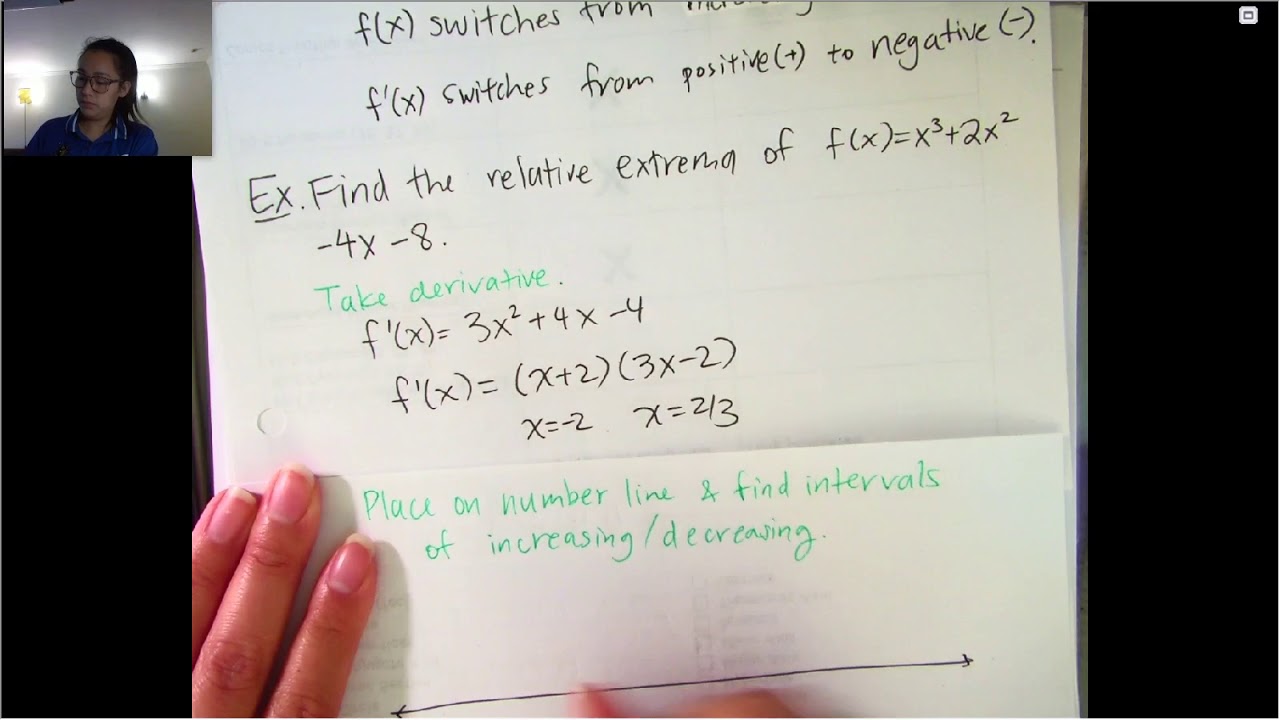 f(x) switches from
f'(x) switches from positive(+) to negative(-).
Ex. Find the relative extrema of f(x)=x³+2x²
-4x -8.
Take derivative.
f'(x)= 3x²+4x -4
f'(x)= (x+2)(3x-2)
x=-2 x=2/3
Place on number line & find intervals
of increasing/decreasing.